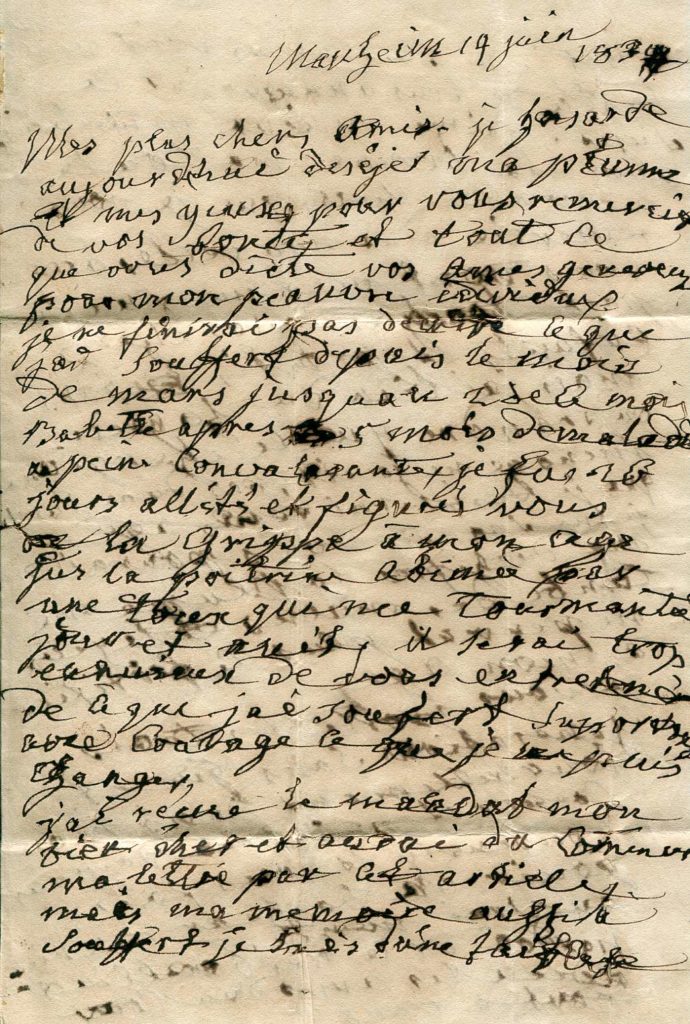 Manheim 14 juin 183
Mes plus chers Amis je hasarde
aujourdhui mapleume
et mes yeuse pour vous remercier
de vos bonté et tout ce
que vous dicte vos Ames genereux
pour mon peauvre individu
je ne finirai pas decrire ce que
jai souffert depuis le mois
de mars jusquau mois
Babette apres 5 mois demaladie
a peine Convalesante, je fus
jours allité et figuré vous
la Grippe a mon age
sur la poitrine abimé par
une toux qui me tourmante
jour et nuit, il serai trop
enuieux de vous entretenir
de ce que jaé souffert suporté
avec Courage ce que je ne puis
changer
jai recue le mandat mon
bien cher et aurai du Commencer
ma lettre par cet article
mais ma memoire aussi a
souffert je suis d'une faiblesse